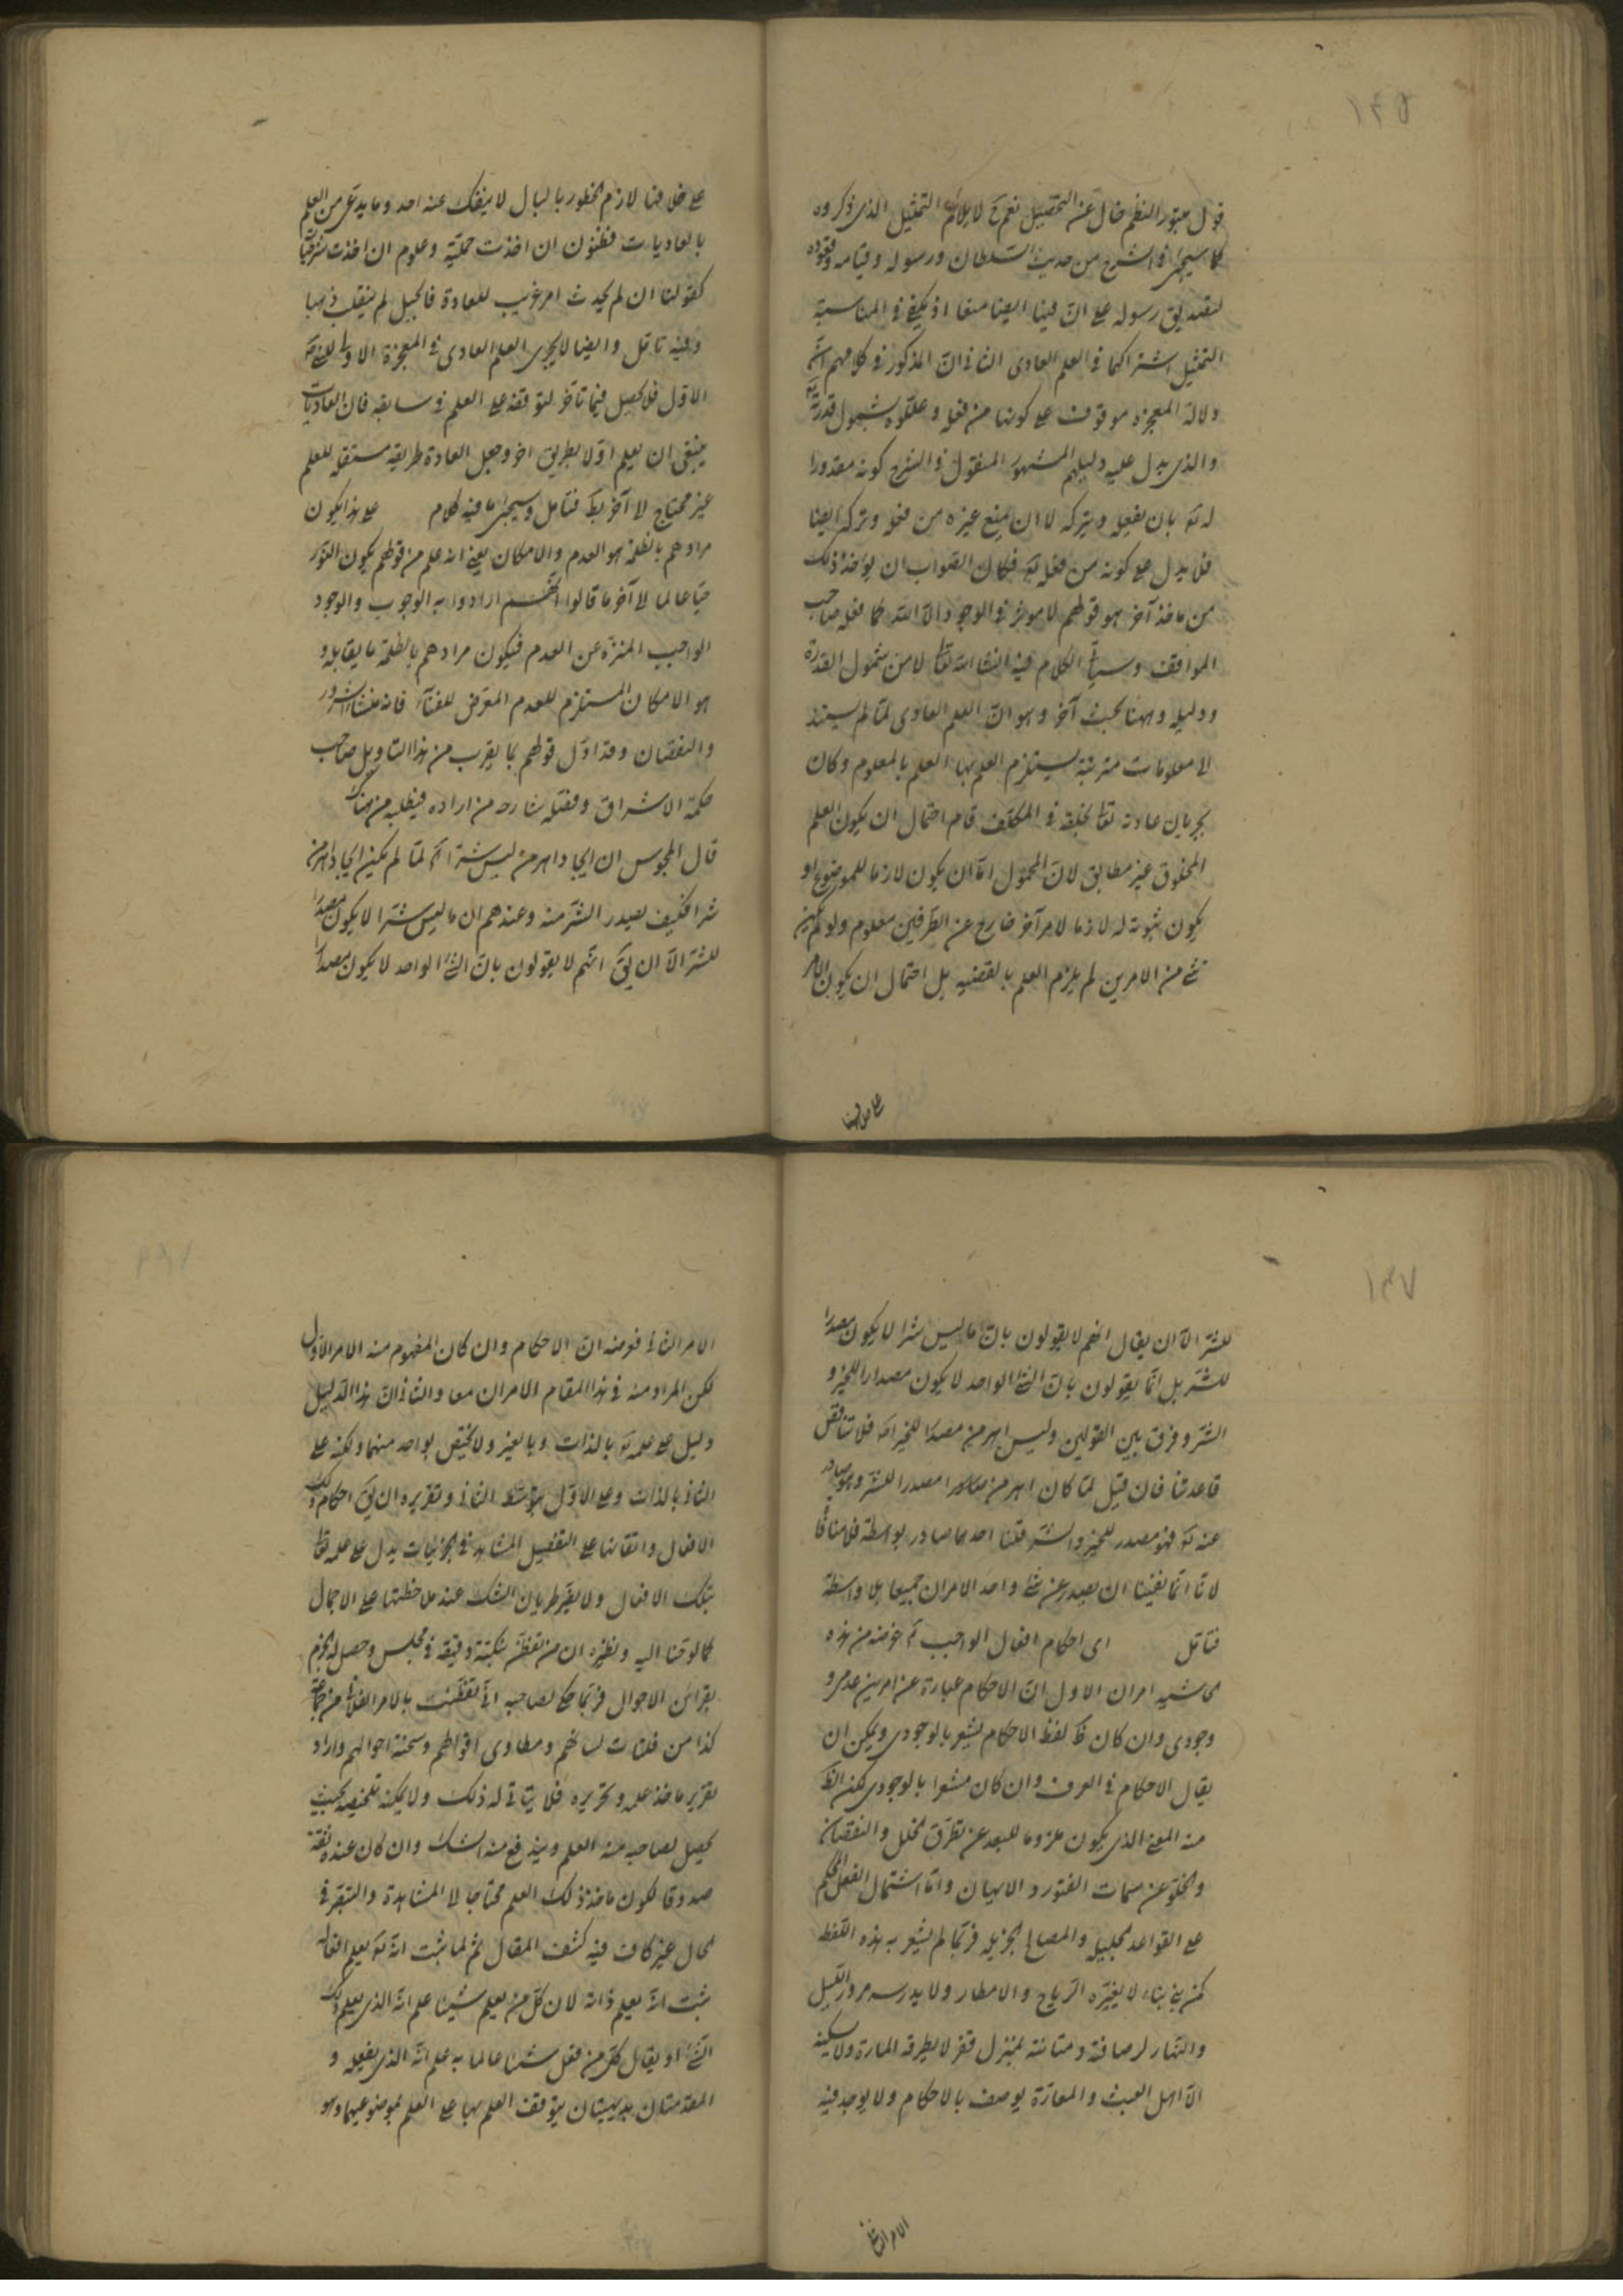 قول مبتور النظم خال عن التحصيل نعم ح لا يلائم التمثيل الذى ذكروه
كما سيجئ فى الشرح من حديث السلطان ورسوله وقيامه وقعوده
لتصديق رسوله على ان فينا ايضا منعا اذ يكفى فى المناسبة
التمثيل اشتراكهما فى العلم العادى الثانى ان المذكور فى كلامهم ان
دلالة المعجزه موقوف على كونها من فعله وعللوه بشمول قدرته
والذى يدل عليه دليلهم المشهور المنقول فى الشرح كونه مقدورا
له تع بان يفعله ويتركه لا ان يمنع غيره من فعله وتركه ايضا
فلا يدل على كونه من فعله تع فكان الصواب ان يؤخذ ذلك
من ماخذ آخر هو قولهم لا موثر فى الوجود الا الله كما فعله صاحب
المواقف وسيأتى الكلام فيه انشا الله تعالى لا من شمول القدرة
ودليله وههنا بحث آخر وهو ان العلم العادى لما لم يستند
الى معلومات مترتبة يستلزم العلم بها العلم بالمعلوم وكان
بجريان عادته تعالى بخلقه فى المكلف قام احتمال ان يكون العلم
المخلوق غير مطابق لان المحمول اما ان يكون لازما للموضوع او
يكون ثبوته له لازما لامر آخر خارج عن الطرفين معلوم ولو لم يكن
شئ من الامرين لم يلزم العلم بالقضيه بل احتمال ان يكون الامر
على خلافها لازم الخطور بالبال لا ينفك عنه احد وما يدعى من العلم
بالعاديات فظنون ان اخذت حملية وعلوم ان اخذت شرطيات
كقولنا ان لم يحدث امر غريب للعادة فالجبل لم ينقلب ذهبا
وفيه تامل وايضا لا يجرى العلم العادى فى المعجزة الاولى للنبى
الاول فلا يحصل فيما تاخر لتوقفه على العلم فى سابقه فان العاديات
ينبغى ان يعلم اولا بطريق اخر وجعل العادة طريقه مستقله للعلم
غير محتاج الى آخر بط فتامل وسيجئ ما فيه كلام على هذا يكون
مرادهم بالظلمة هو العدم والامكان يعنى انه علم من قولهم يكون النور
حيا عالما الى آخر ما قالوا انهم ارادوا به الوجوب والوجود
الواجب المنزه عن العدم فيكون مرادهم بالظلمة ما يقابله و
هو الامكان المستلزم للعدم المعرض للفناء فانه منشاء الشرور
والنقصان وقد اول قولهم بما يقرب من هذا التاويل صاحب
حكمة الاشراق وفصله شارحه من اراده فيطلبه من هناك
قال المجوس ان ايجاد اهرمن ليس شرا اه لما لم يكن ايجاد اهرمن
شرا فكيف يصدر الشر منه وعندهم ان ما ليس شرا لا يكون مصدرا
للشر الا ان يق انهم لا يقولون بان الشئ الواحد لا يكون مصدرا
للشر الا ان يقال انهم لا يقولون بان ما ليس شرا لا يكون مصدرا
للشر بل انما يقولون بان الشئ الواحد لا يكون مصدرا للخير و
الشر وفرق بين القولين وليس اهرمن مصدرا للخير اه فلا تناقض
قاعدتنا فان قيل لما كان اهرمن مصدرا للشر وهو صادر
عنه تع فهو مصدر للخير والشر قلنا احدهما صادر بواسطة فلا منافاة
لانا انما نفينا ان يصدر عن شئ واحد الامران جميعا بلا واسطة
فتامل اى احكام افعال الواجب تع غرضه من هذه
الحاشيه امران الاول ان الاحكام عبارة عن امرين عدمى و
وجودى وان كان ظ لفظ الاحكام يشعر بالوجودى ويمكن ان
يقال الاحكام فى العرف وان كان مشعرا بالوجودى لكن الظ
منه المعنى الذى يكون ملزوما للبعد عن تطرق الخلل والنقصان
والخلو عن سمات الفتور والابهان واما اشتمال الفعل المحكم
على القواعد الجليله والمصالح الجزيله فربما لم يشعر به هذه اللفظ
كمن بنى بناء لا يغيره الرياح والامطار ولا يدرسه مرور الليل
والنهار لرصافته ومتانته بمنزل قفر لا يطرقه المارة ولا يسكنه
الا اهل العبث والمعازة يوصف بالاحكام ولا يوجد فيه
الامر الثانى فومنه ان الاحكام وان كان المفهوم منه الامر الاول
لكن المراد منه فى هذا المقام الامران معا والثانى ان هذا الدليل
دليل على علمه تع بالذات وبالغير ولا يختص بواحد منهما ولكنه على
الثانى بالذات وعلى الاول بتوسط الثانى وتقريره ان يق احكام تلك
الافعال واتقانها على التفصيل المشاهد فى الجزئيات يدل على علمه تعالى
بتلك الافعال ولا يضر طريان الشك عند ملاحظتها على الاجمال
كما لوحنا اليه ونظيره ان من تفطن بنكتة دقيقه فى مجلس وحصل له الجزم
بقرائن الاحوال فربما حكى لصاحبه انى تفطنت بالامر الفلانى من جماعة
كذا من فلتات لسانهم ومطاوى اقوالهم وسحنة احوالهم واراد
تقرير ماخذ علمه وتحريره فلا يتاتى له ذلك ولا يمكنه تلخيصه بحيث
يحصل لصاحبه منه العلم ويندفع منه الشك وان كان عنده ثقة
صدوقا لكون ماخذ ذلك العلم محتاجا الى المشاهدة والتبقر فى
الحال غير كاف فيه كشف المقال ثم لما ثبت انه تع يعلم افعاله
ثبت انه يعلم ذاته لان كل من يعلم شيئا علم انه الذى يعلم ذلك
الشئ او يقال كل من فعل شيئا عالما به علم انه الذى يفعله و
المقدمتان بديهيتان يتوقف العلم بها على العلم بموضوعيهما وهو